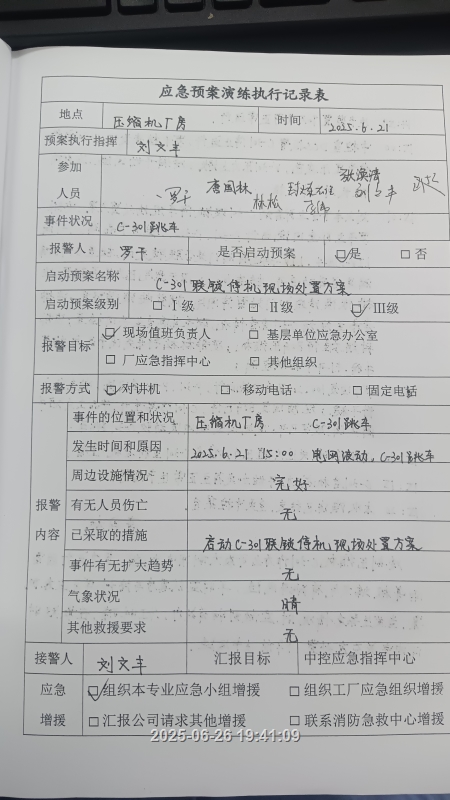 应急预案演练执行记录表
地点 压缩机厂房 时间 2025.6.21
预案执行指挥 刘文丰
参加 张漢清
人员 罗干 唐国林 林松 刘文丰
事件状况 C-301跳车
报警人 罗干 是否启动预案 ☑是 □否
启动预案名称 C-301联锁停机现场处置方案
启动预案级别 □Ⅰ级 □Ⅱ级 ☑Ⅲ级
报警目标 ☑现场值班负责人 □基层单位应急办公室
□厂应急指挥中心 □其他组织
报警方式 ☑对讲机 □移动电话 □固定电话
报警内容 事件的位置和状况 压缩机厂房 C-301跳车
发生时间和原因 2025.6.21 15:00 电网波动,C-301跳车
周边设施情况 完好
有无人员伤亡 无
已采取的措施 启动C-301联锁停机现场处置方案
事件有无扩大趋势 无
气象状况 晴
其他救援要求 无
接警人 刘文丰 汇报目标 中控应急指挥中心
应急 ☑组织本专业应急小组增援 □组织工厂应急组织增援
增援 □汇报公司请求其他增援 □联系消防急救中心增援
2025-06-26 19:41:09